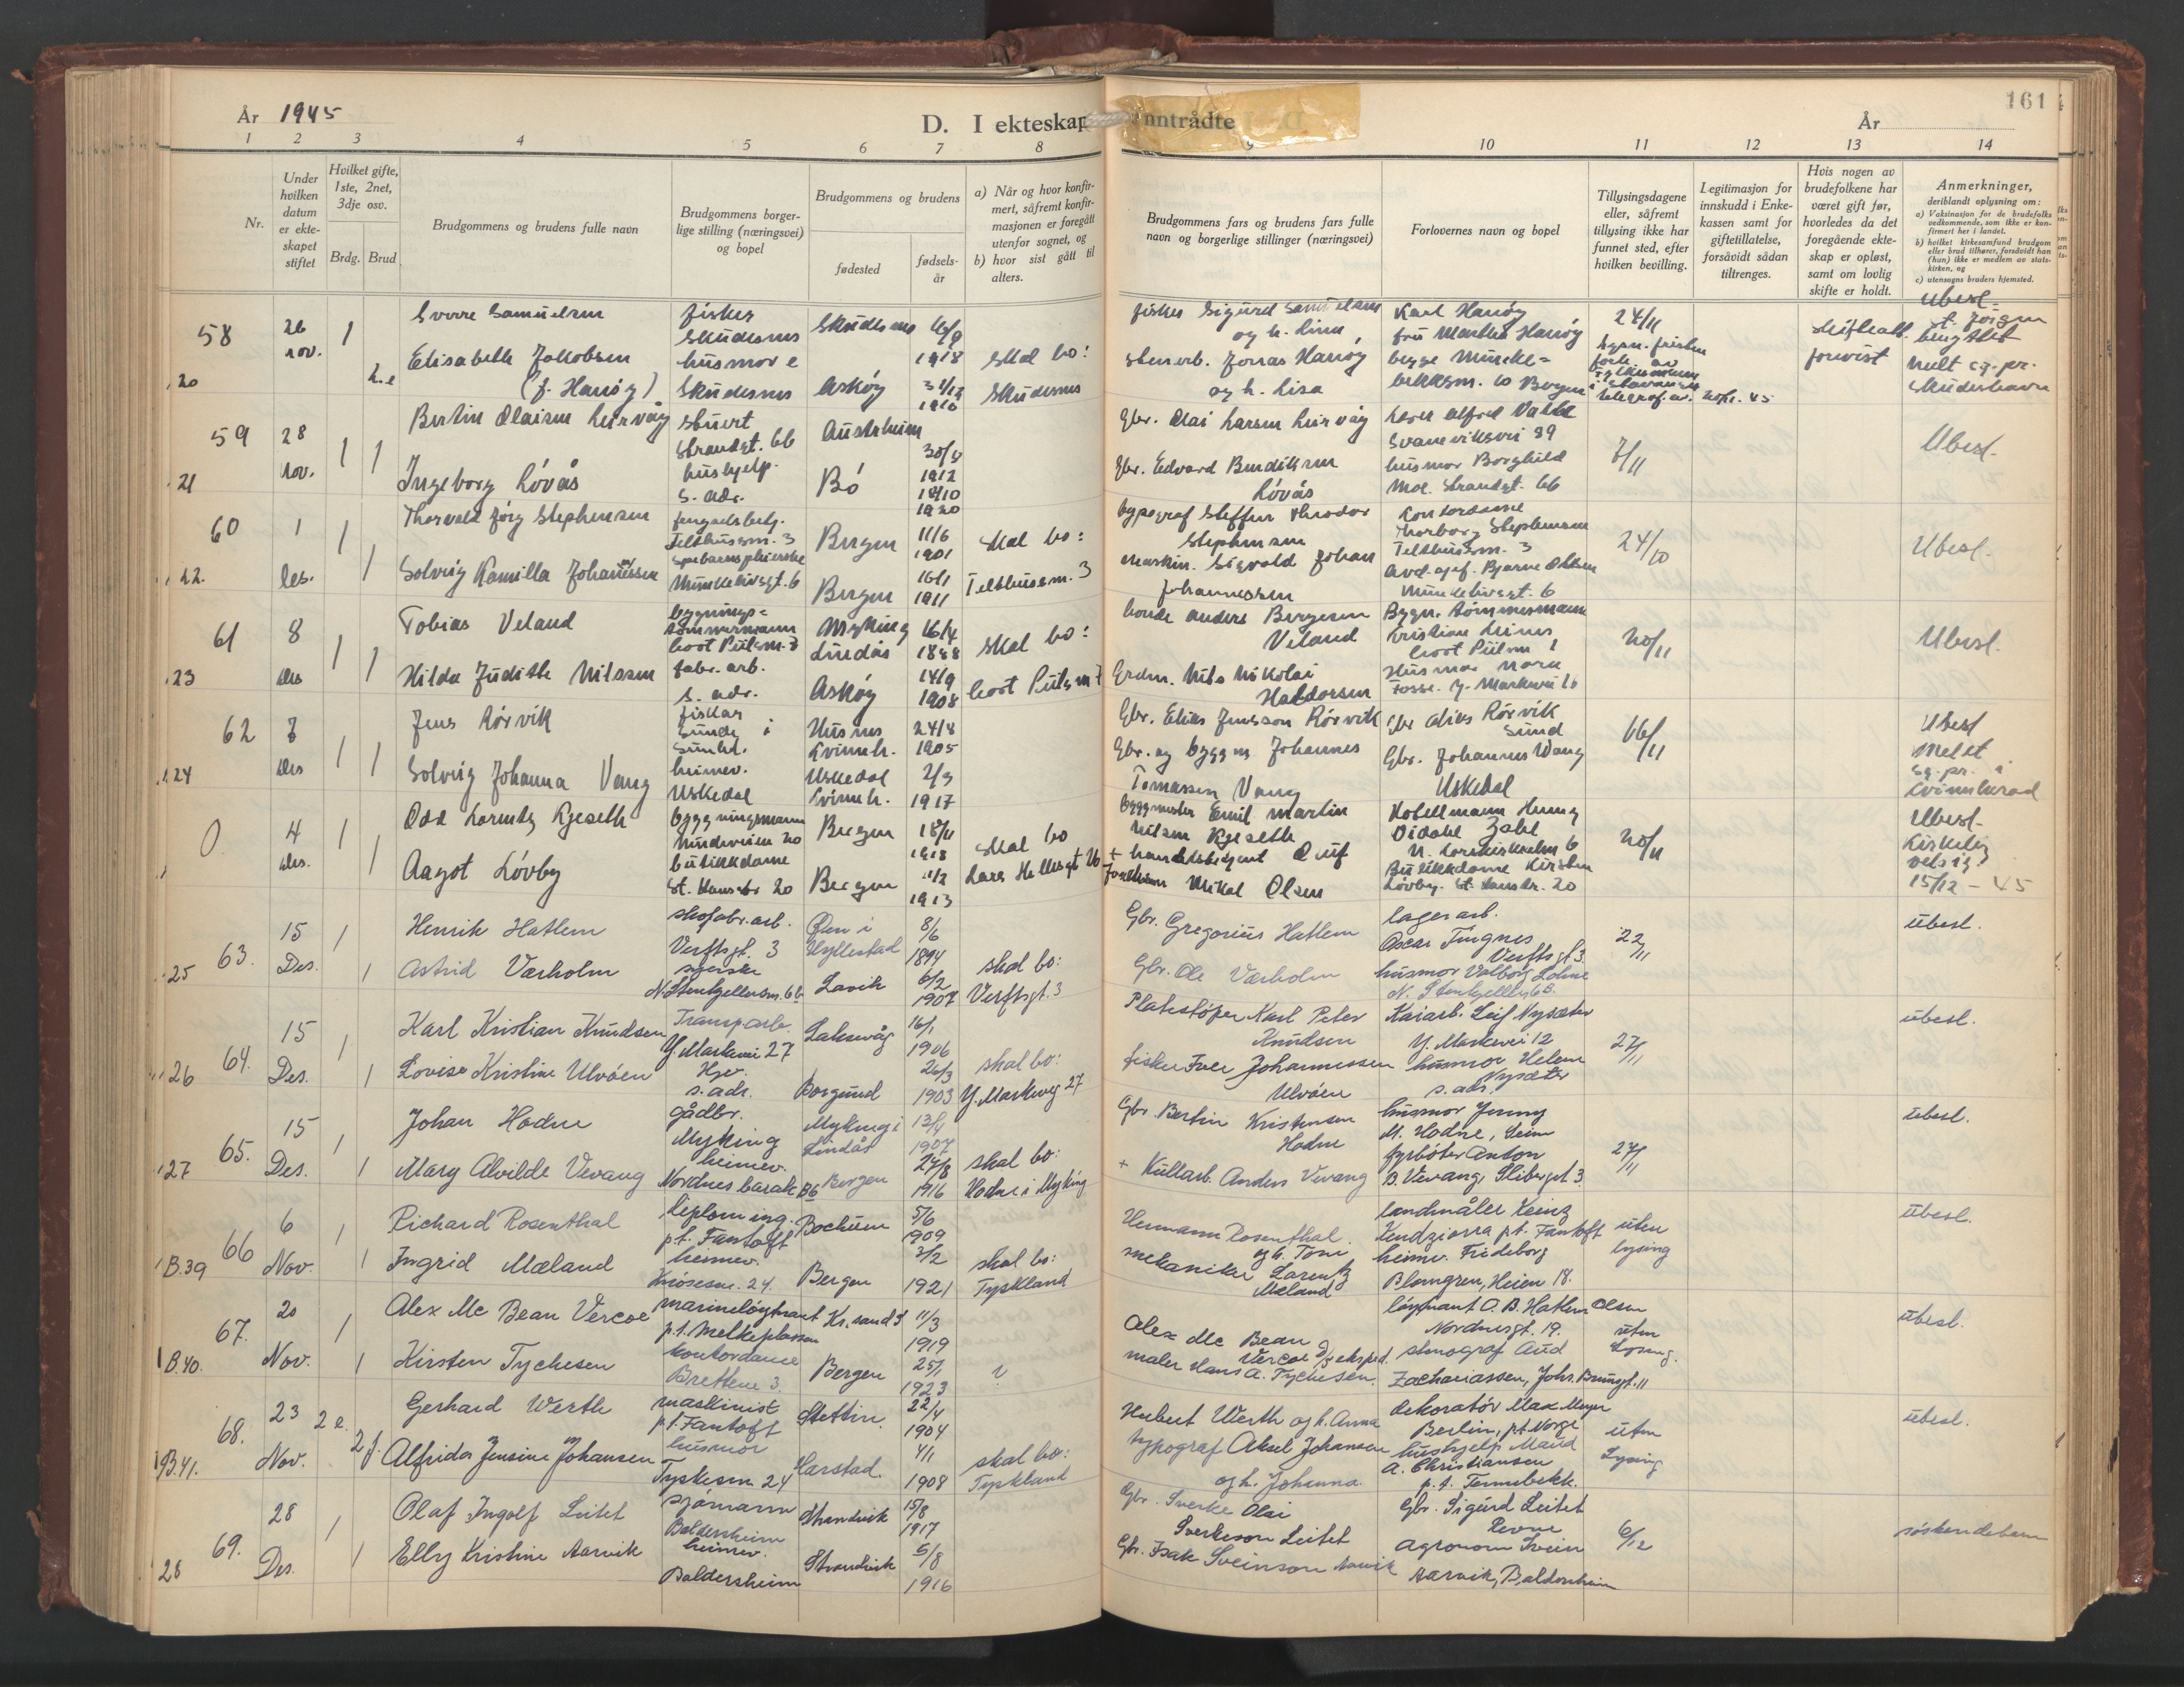 År 1945
D. I ekteskap inntrådte
År
161
1 2 3 4 5 6 7 8 9 10 11 12 13 14
Nr.
Under hvilken datum er ekteskapet stiftet
Hvilket gifte, 1ste, 2net, 3dje osv.
Brdg. Brud
Brudgommens og brudens fulle navn
Brudgommens borgerlige stilling (næringsvei) og bopel
Brudgommens og brudens
fødested
fødselsår
a) Når og hvor konfirmert, såfremt konfirmasjonen er foregått utenfor sognet, og
b) hvor sist gått til alters.
Brudgommens fars og brudens fars fulle navn og borgerlige stillinger (næringsvei)
Forlovernes navn og bopel
Tillysingsdagene eller, såfremt tillysing ikke har funnet sted, efter hvilken bevilling.
Legitimasjon for innskudd i Enkekassen samt for giftetillatelse, forsåvidt sådan tiltrenges.
Hvis nogen av brudefolkene har været gift før, hvorledes da det foregående ekteskap er opløst, samt om lovlig skifte er holdt.
Anmerkninger, deriblandt oplysning om:
a) Vaksinasjon for de brudefolks vedkommende, som ikke er konfirmert her i landet.
b) hvilket kirkesamfund brudgom eller brud tilhører, forsåvidt han (hun) ikke er medlem av statskirken, og
c) utensogns bruders hjemsted.
58 26 nov. 1 Sverre Samuelsen fisker Skudesnes Skudesnes 4/9 1918 skal bo:
fisker Sigurd Samuelsen og h. Lina Karl Hanøy fru Martha Hanøy 24/11 Ubesl.
20 2.e Elisabeth Jakobsen (f. Hanøy) husmor e Skudesnes Askøy 1910 Skudesnes
stenarb. Jonas Hanøy og h. Lisa begge Munkebekksm. 10 Bergen
59 28 nov. 1 1 Bertin Olaisen Leirvåg stuert Strandgt. 66 Austrheim 30/4 1912
Gbr. Olai Larsen Leirvåg Alfred Valle Svaneviksvei 89 7/11 Ubesl.
21 Ingeborg Løvås hushjelp. s. adr. Bø 1920
Gbr. Edvard Bendiksen Løvås husmor Borghild Moe. Strandgt. 66
60 1 des. 1 1 Thorvald Jørg Stephensen Telthussm. 3 Bergen 11/6 1901 skal bo:
typograf Steffen Theodor Stephensen kontordame Thorborg Stephensen Telthussm. 3 24/10 Ubesl.
22. Solveig Kamilla Johannessen Munkebotsgt. 6 Bergen 16/1 1911 Telthussm. 3
maskin. Sigvald Johan Johannessen Bjarne Olsen
61 8 des 1 1 Tobias Veland bygningstømmermann Myking Lindås 16/4 1888 skal bo:
bonde Anders Bergesen Veland Bygn. tømmermann Kristian 20/11 Ubesl.
23 Hilda Judith Nilssen fabr. arb. s. adr. Askøy 14/9 1908
Nils Nikolai Haldorsen Husmor Nora Fosse. Y. Markevei 10
62 8 des 1 1 Jens Rørvik fisker Sunde i Husnes Kvinnh. 24/8 1905
Gbr. Elias Jensson Rørvik Gbr Rørvik Sund 16/11 Ubesl
24 Solveig Johanna Vang heimev. Uskedal Uskedal Kvinnh. 2/3 1917
Gbr. og byggm Johannes Tomassen Vang Gbr. Johannes Vang Uskedal Meldt sg. pr. i Kvinnherad
0 4 des. 1 1 Odd Kjeseth bygningsmann 20 Bergen 18/11 1918 skal bo
byggmester Emil Martin Nilsen Kjeseth 20/11 Ubesl. Kirkelig velsig 15/12 - 45
Aagot Løvby butikkdame St. Hansstr. 20 Bergen 11/2 1913 Lars Hillesgt
Mikal Olsen Butikkdame Kirsten Løvby. St. Hansstr. 20
63. 15 Des. 1 1 Henrik Hatlem skofabr.arb. Verftsgt. 3 Øen i Hyllestad 8/6 1894 skal bo:
Gbr. Gregorius Hatlem lagerarb. Oscar Tingnes Verftsgt 3. 22/11 ubesl.
25 Astrid Værholm syerske N. Stenkjellersm. 6b Lavik 6/2 1907 Verftsgt. 3
Gbr. Ole Værholm husmor Valborg N. Stenkjellersm 6B.
64. 15 Des. 1 1 Karl Kristian Knudsen Transp.arb. Y. Markevei 27 Laksevåg 16/1 1906 skal bo:
Plateslager Karl Peter Knudsen Kaiarb. Leif Nysæter Y. Markevei 12 27/11 ubesl.
26 Lovise Kristine Ulvøen Hjv. s. adr. Borgund 26/3 1903 Y. Markevei 27
fisker Iver Johannessen Ulvøen husmor Helene Nysæter s. adr.
65. 15 Des. 1 1 Johan Hodne gårdbr. Myking Myking i Lindås 13/4 1907 skal bo:
Gbr. Bertin Kristensen Hodne husmor Jenny M. Hodne, Seim 27/11 ubesl.
27 Mary Alvilde Vevang heimev. Nordnes barak B6 Bergen 27/8 1916 Hodne i Myking
+ Kullarb. Anders Vevang fyrbøter Anton B. Vevang,
66 6 Nov. 1 1 Richard Rosenthal diplom ing. p.t. Fantoft Bochum 5/6 1909 skal bo:
Hermann Rosenthal og h. Toni landmåler Heinz Kendziorra pt. Fantoft uten lysing ubesl.
B.39 Ingrid Mæland heimev. 24. Bergen 3/2 1921 Tyskland
mekaniker Lorentz Mæland heimev. Frideborg Blomgren, Heien 18.
67. 20 Nov. 1 1 Alex Mc Bean Vercoe marineløytnant p.t. Melkeplassen Kr.sand S 11/3 1919 ?
Alex Mc Bean Vercoe d/s eksped. løytnant O. B. Hatlem Olsen Nordnesgt. 19. uten lysing. ubesl.
B.40. Kirsten Tychesen kontordame Brettene 3. Bergen 25/1 1923
maler Hans A. Tychesen. stenograf Aud Zachariassen, Johs. Brunsgt. 11
68. 23 Nov. 2 e. 2 f. Gerhard Werth maskinist p.t. Fantoft Stettin. 22/4 1904 skal bo:
Hubert Werth og h. Anna dekoratør Max Meyer Berlin, pt. Norge uten lysing ubesl.
B.41. Alfrida Jensine Johansen husmor Tyskesm. 24 Harstad. 4/1 1908 Tyskland
typograf Aksel Johansen og h. Johanna. hushjelp Maud A. Christiansen p.t. Tennebekk.
69. 28 Des. 1 1 Olaf Ingolf Leitet sjømann Baldersheim Strandvik 15/8 1917
Gbr. Sverke Olai Sverkeson Leitet Gbr. Sigurd Leitet Revne 6/12 søskendebarn
28 Elly Kristine Aarvik heimev. Baldersheim Strandvik 5/8 1916
Gbr. Isak Sveinson Aarvik Agronom Svein Aarvik, Baldersheim